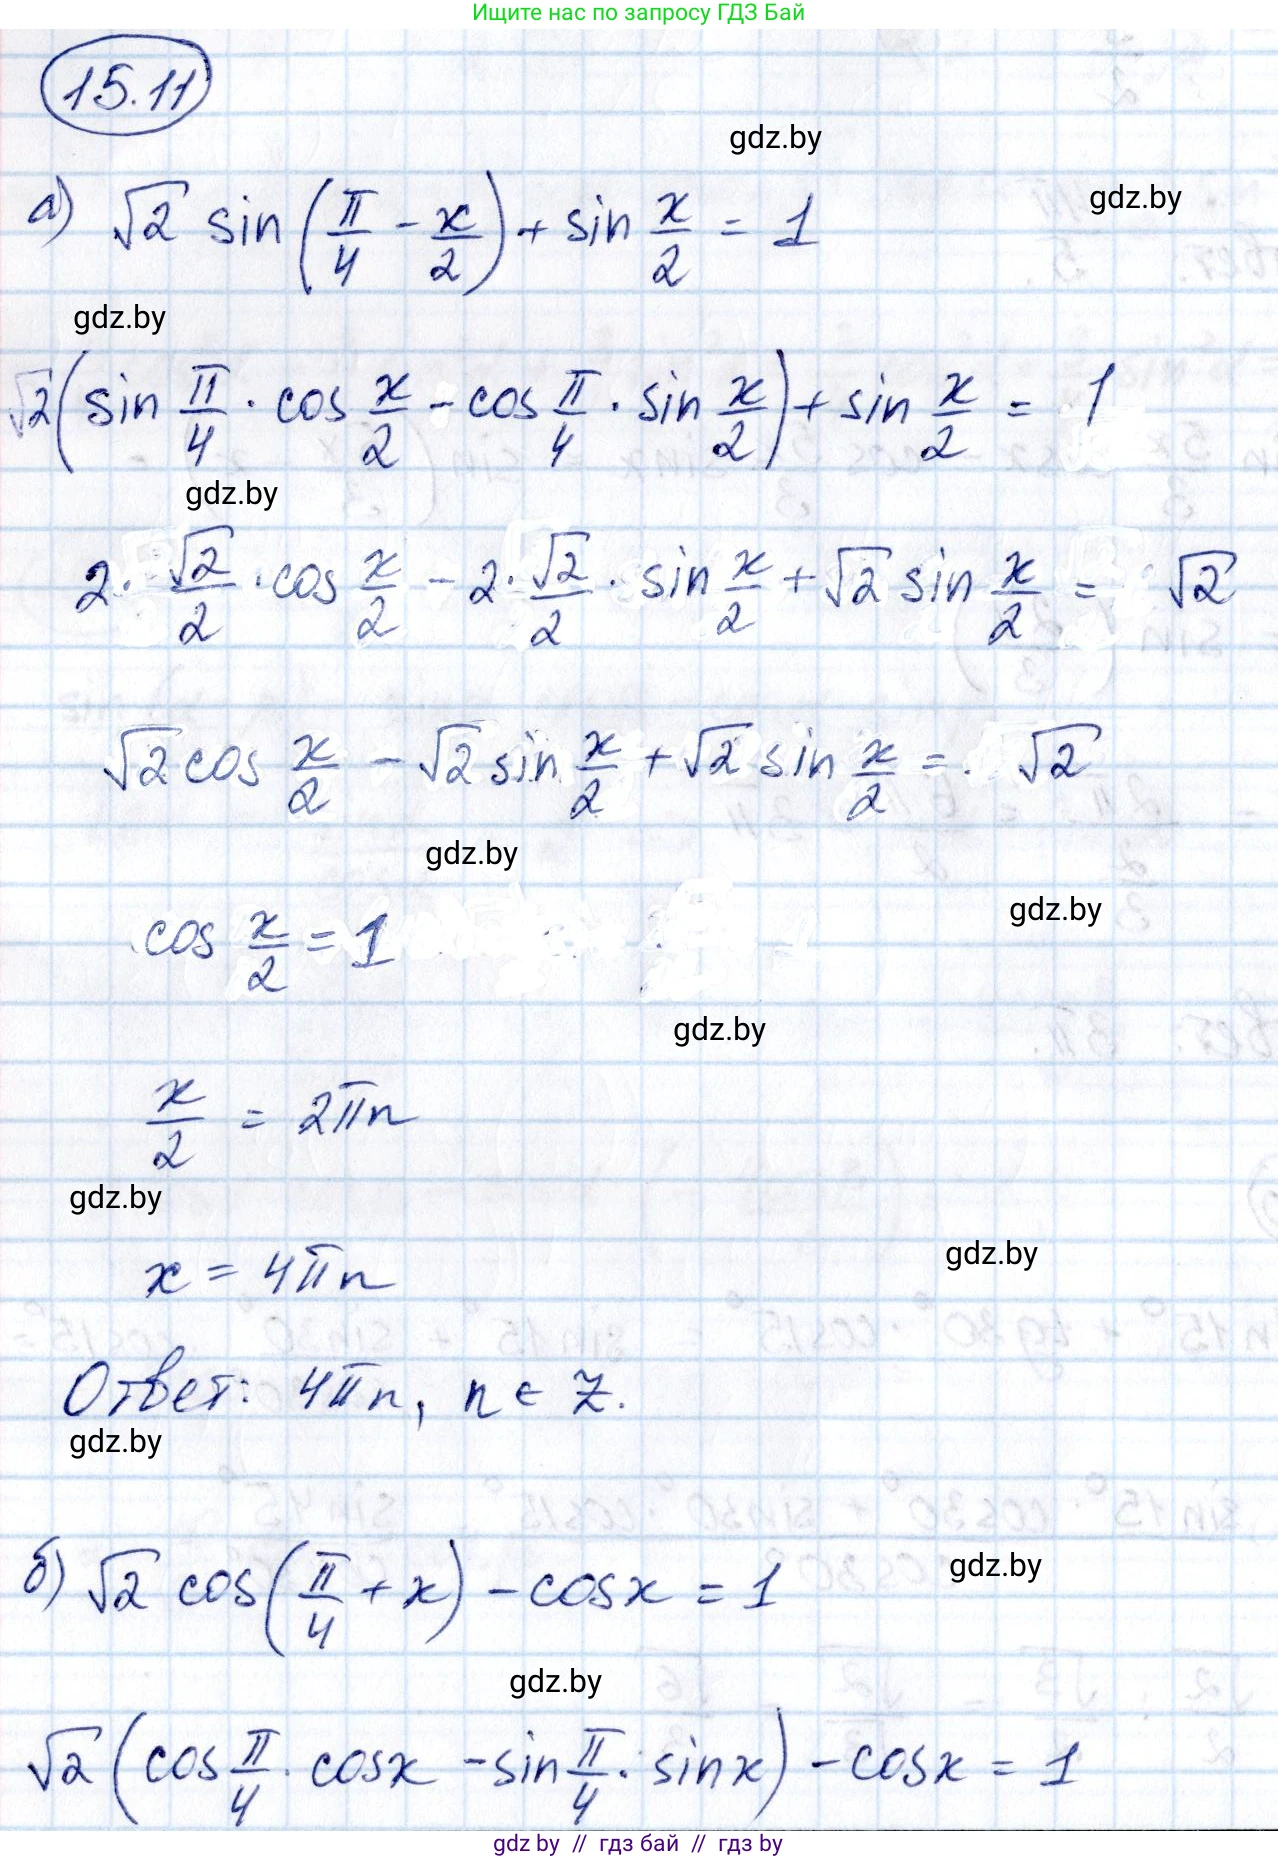 Ищите нас по запросу ГДЗ Бай
15.11
gdz.by
gdz.by
а) √2 sin(π/4 - x/2) + sin x/2 = 1
gdz.by
√2(sin π/4 · cos x/2 - cos π/4 · sin x/2) + sin x/2 = 1
gdz.by
2 · √2/2 · cos x/2 - 2 · √2/2 · sin x/2 + √2 sin x/2 = √2
√2 cos x/2 - √2 sin x/2 + √2 sin x/2 = √2
gdz.by
gdz.by
cos x/2 = 1
gdz.by
x/2 = 2πn
gdz.by
gdz.by
x = 4πn
Ответ: 4πn, n ∈ Z.
gdz.by
б) √2 cos(π/4 + x) - cosx = 1
gdz.by
gdz.by
√2 (cos π/4 · cosx - sin π/4 · sinx) - cosx = 1
gdz by // гдз бай // gdz by